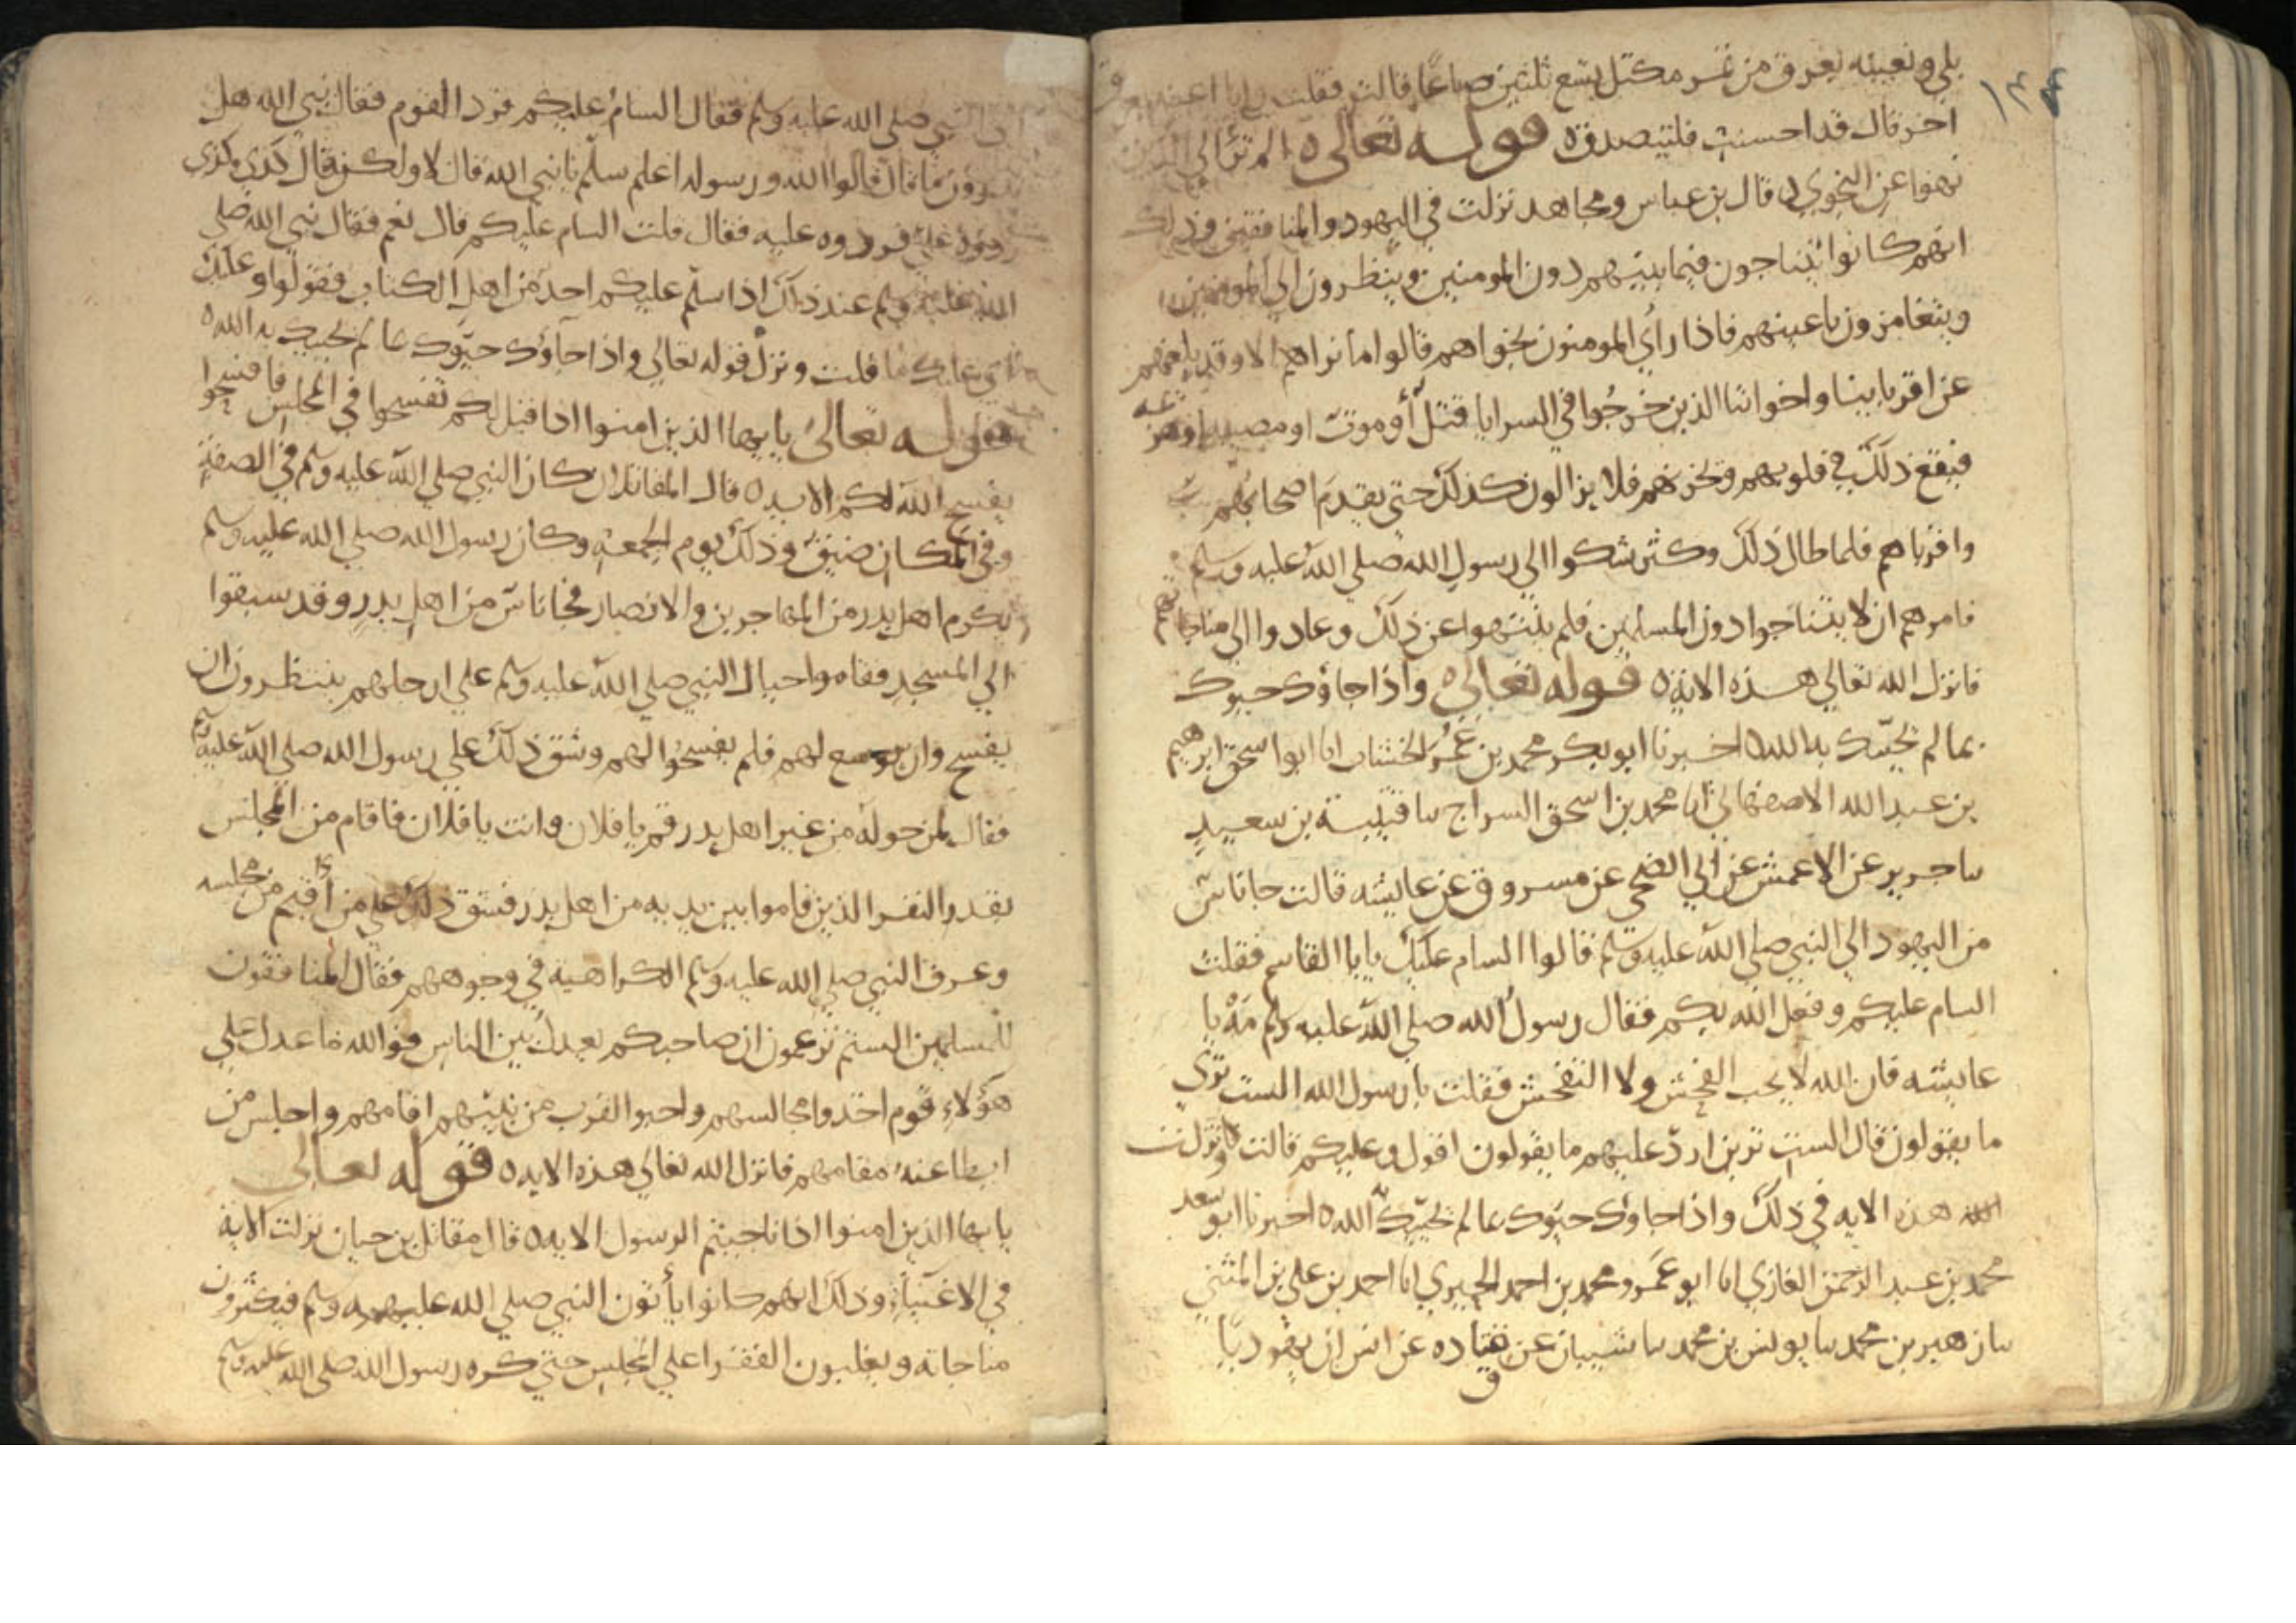 ١٣٤
بلي ونعينه بعرق من تمر مكتل يسع ثلثين صاعا قالت فقلت وانا اعينه بعرق
اخر قال قد احسنت فليتصدق ه قوله تعالى ه الم تر الي الذين
نهوا عن النجوي ه قال بن عباس ومجاهد نزلت في اليهود والمنافقين وذلك
انهم كانوا يتناجون فيما بينهم دون المومنين وينظرون الي المومنين
ويتغامزون باعينهم فاذا رأي المومنون نجواهم قالوا ما نراهم الا وقد بلغهم
عن اقربايينا واخواننا الذين خرجوا في السرايا قتل أو موت او مصيبه او هزيمه
فيقع ذلك في قلوبهم وتحزنهم فلا يزالون كذلك حتي يقدم اصحابهم
واقرباهم فلما طال ذلك وكثر شكوا الي رسول الله صلي الله عليه وسلم
فامرهم ان لا يتناجوا دون المسلمين فلم ينتهوا عن ذلك وعادوا الي مناجاتهم
فانزل الله تعالي هذه الايه ه قوله تعالي ه واذا جاؤك حيوك
بما لم يحيّك به الله ه اخبرنا ابو بكر محمد بن عمر الخشاب انا ابوا سحق ابرهيم
بن عبد الله الاصفهاني انا محمد بن اسحق السراج سا قتيبة بن سعيد
سا جرير عن الاعمش عن ابي الضحي عن مسروق عن عايشه قالت جا ناس
من اليهود الي النبي صلي الله عليه وسلم فقالوا السام عليك يابا القاسم فقلت
السام عليكم وفعل الله بكم فقال رسول الله صلي الله عليه وسلم مه يا
عايشه فان الله لا يحب الفحش ولا التفحش فقلت يا رسول الله الست تري
ما يقولون قال الست ترين ارد عليهم ما يقولون اقول وعليكم قالت ونزلت
هذه الايه في ذلك واذا جاوك حيوك بما لم يحيّك الله ه اخبرنا ابو سعد
محمد بن عبد الرحمن الغازي انا ابو عمرو محمد بن احمد الحيري انا احمد بن علي بن المثني
سا زهير بن محمد سا يونس بن محمد سا شيبان عن قتاده عن انس ان يهوديا
النبي صلي الله عليه وسلم فقال السام عليكم فرد القوم فقال نبي الله هل
تدرون ما قال قالوا الله ورسوله اعلم سلّم يا نبي الله قال لا ولكنه قال كذي وكذي
ردوه علي فردوه عليه فقال قلت السام عليكم قال نعم فقال نبي الله صلي
الله عليه وسلم عند ذلك اذا سلم عليكم احد من اهل الكتاب فقولوا وعليك
اي عليك ما قلت ونزل قوله تعالي واذا جآؤك حيّوك بما لم يحيك به الله ه
قوله تعالى يايها الذين امنوا اذا قيل لكم تفسحوا في المجلس فافسحوا
يفسح الله لكم الايه ه قال المقاتلان كان النبي صلي الله عليه وسلم في الصفة
وفي المكان ضيق وذلك يوم الجمعه وكان رسول الله صلي الله عليه وسلم
يكرم اهل بدر من المهاجرين والانصار فجا ناس من اهل بدر وقد سبقوا
الي المسجد فقاموا حيال النبي صلي الله عليه وسلم علي ارجلهم ينتظرون ان
يفسح وان يوسع لهم فلم يفسحوا لهم وشق ذلك علي رسول الله صلي الله عليه وسلم
فقال لمن حوله من غير اهل بدر قم يا فلان وانت يا فلان فاقام من المجلس
بقدر النفر الذين قاموا بين يديه من اهل بدر فشق ذلك علي من أقيم من مجلسه
وعرف النبي صلي الله عليه وسلم الكراهيه في وجوههم فقال المنافقون
للمسلمين الستم تزعمون ان صاحبكم يعدل بين الناس فوالله ما عدل علي
هؤلاء قوم اخذوا مجالسهم واحبوا القرب من نبيهم اقامهم واجلس من
ابطا عنه مقامهم فانزل الله تعالي هذه الايه ه قوله تعالى
يايها الذين امنوا اذا ناجيتم الرسول الايه ه قال مقاتل بن حيان نزلت الاية
في الاغنيآء وذلك انهم كانوا يأتون النبي صلي الله عليه وسلم فيكثرون
مناجاته ويغلبون الفقرا علي المجلس حتي كره رسول الله صلي الله عليه وسلم